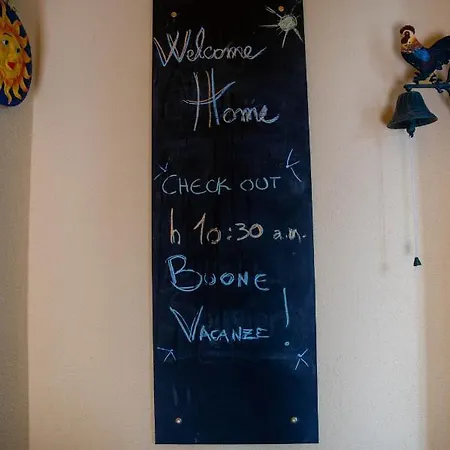 Welcome
Home
CHECK OUT
h 10:30 a.m.
BUONE
VACANZE!